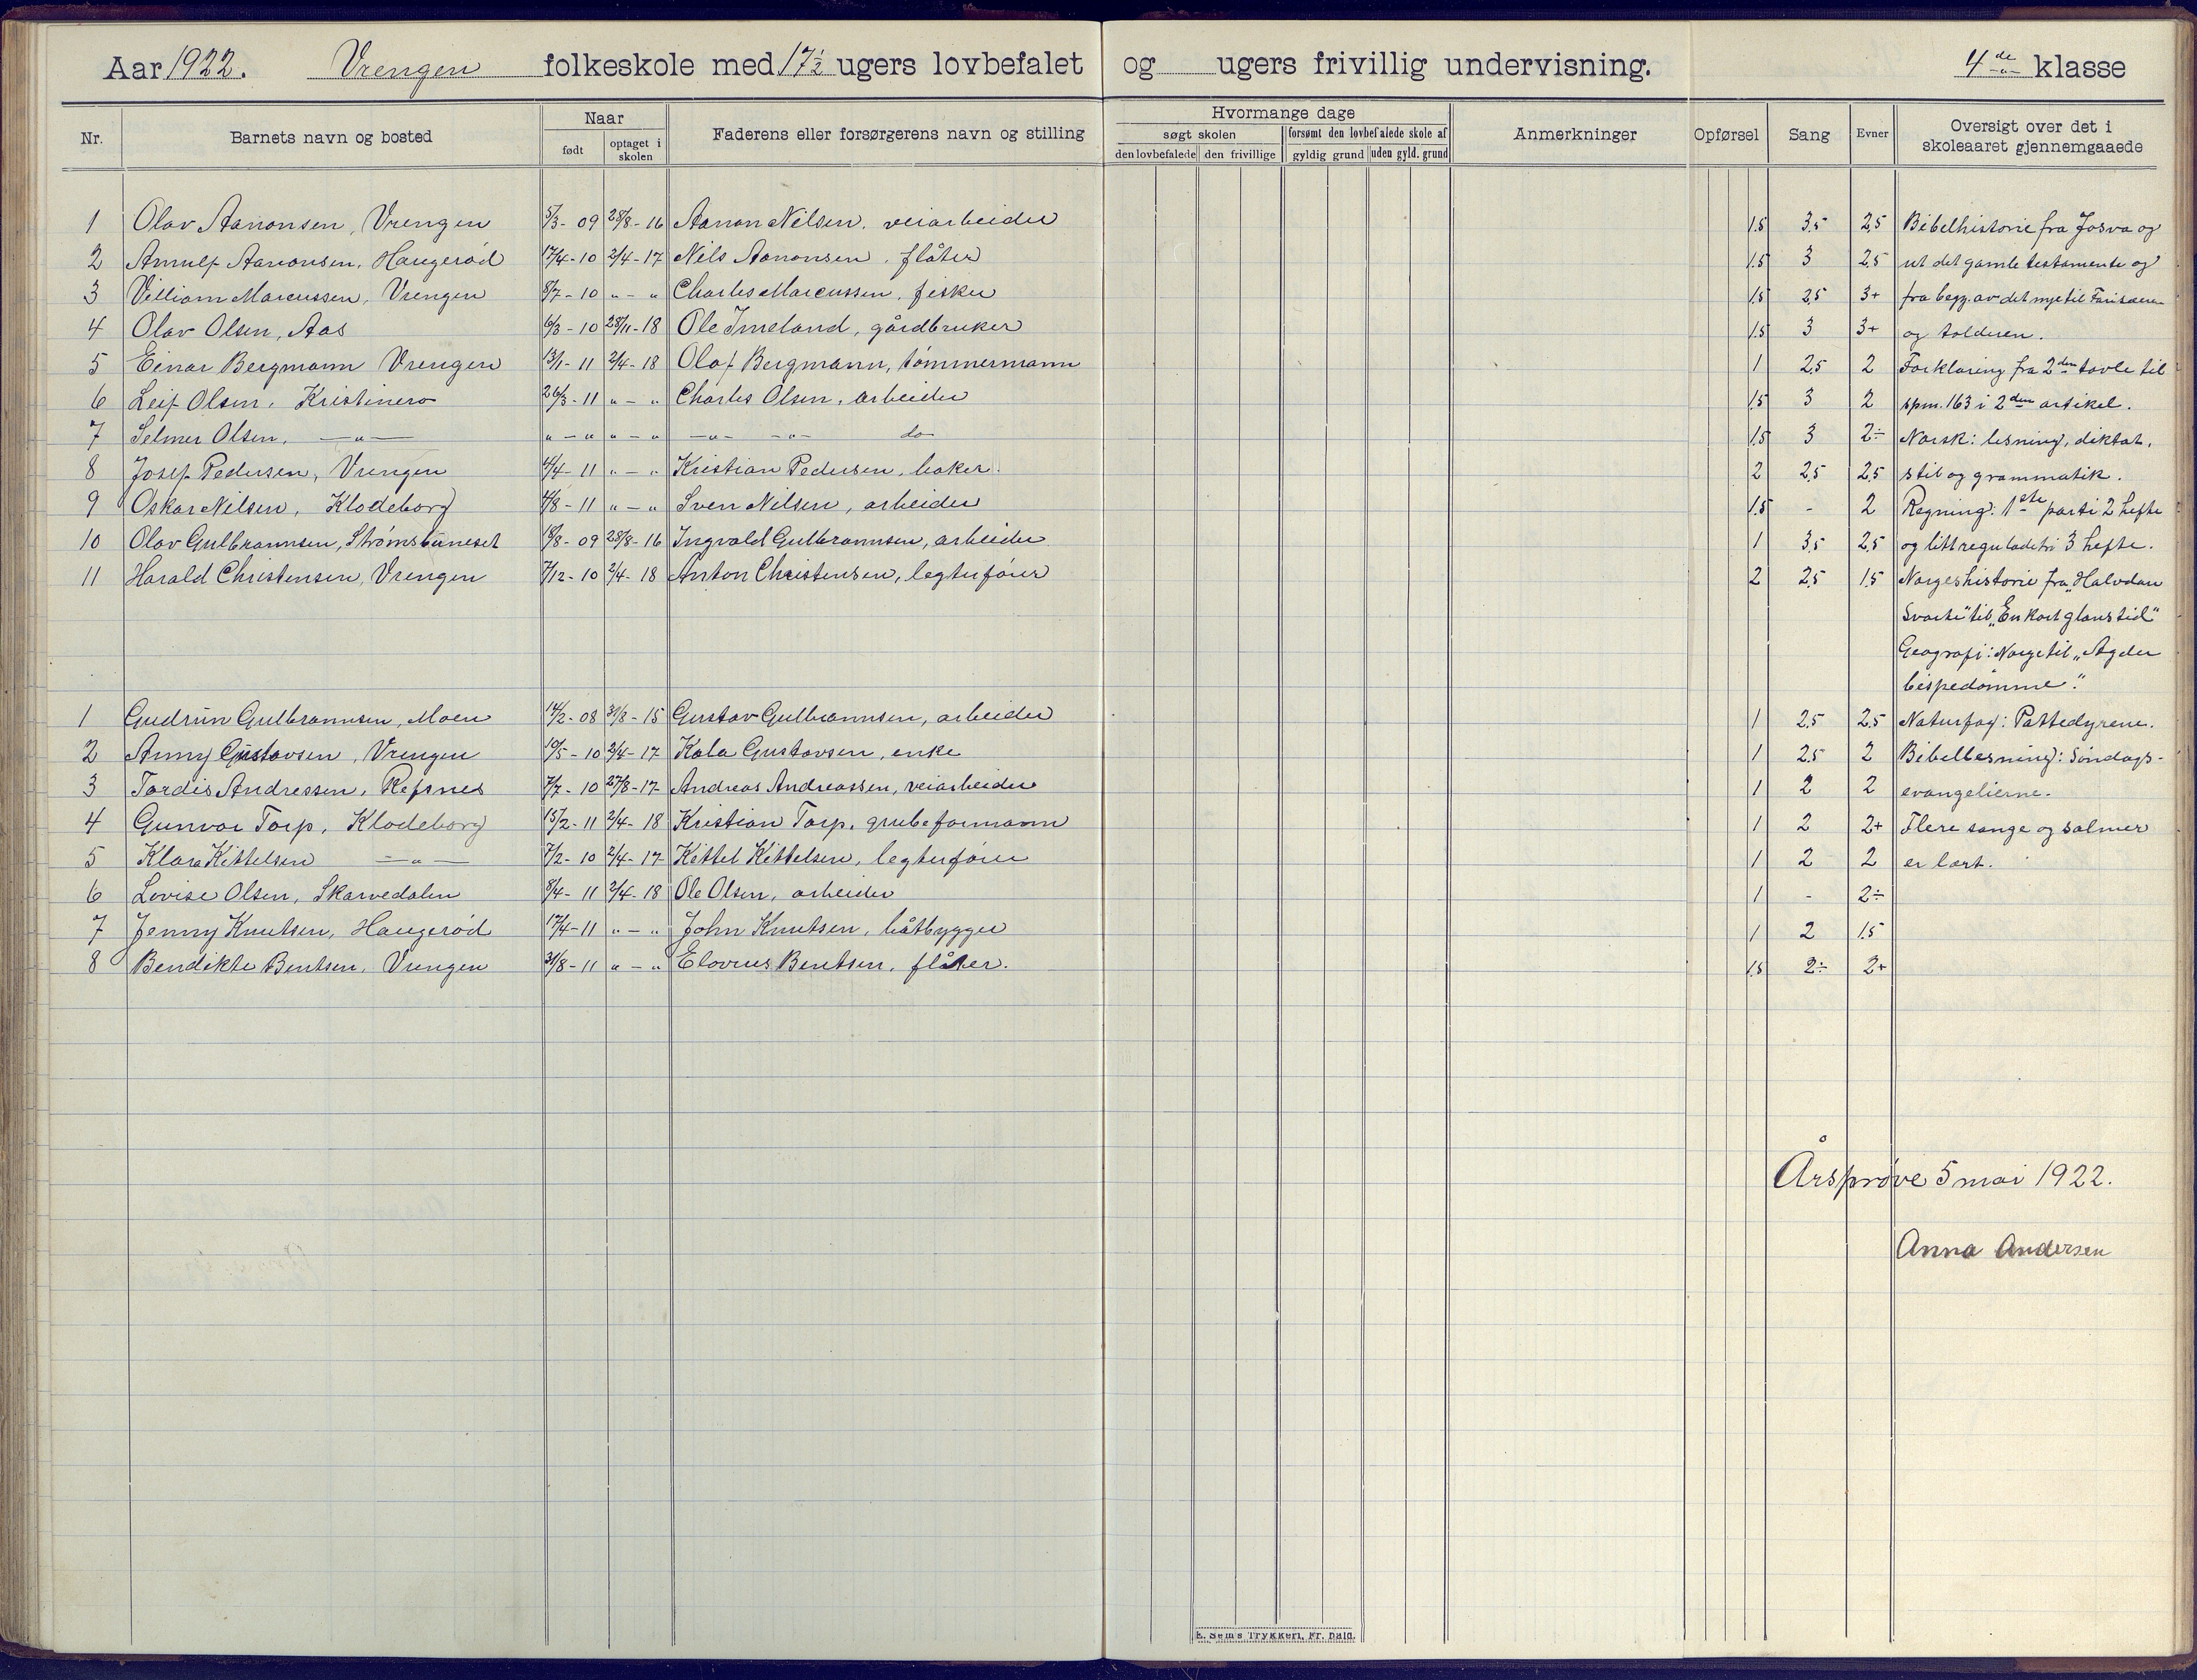 Aar 1922. Vrengen folkeskole med 17½ ugers lovbefalet og ugers frivillig undervisning. 4de klasse
Nr. Barnets navn og bosted Naar født optaget i skolen Faderens eller forsørgerens navn og stilling Hvormange dage søgt skolen den lovbefalede den frivillige forsømt den lovbefalede skole af gyldig grund uden gyld. grund Anmerkninger Opførsel Sang Evner Oversigt over det i skoleaaret gjennemgaaede
1 Olav Aanonsen, Vrengen 5/3-09 28/8-16 Aanon Nilsen, veiarbeider 1.5 3.5 2.5 Bibelhistorie fra Josva og
2 Arnulf Aanonsen, Haugerød 17/4-10 2/4-17 Nils Aanonsen, flåter 1.5 3 2.5 ut det gamle testamente og
3 Villiam Marcussen, Vrengen 8/7-10 " - " Charles Marcussen, fisker 1.5 2.5 3+ fra begg. av det nye til Farisæeren
4 Olav Olsen, Aas 6/3-10 28/11-18 Ole Imeland, gårdbruker 1.5 3 3+ og tolderen.
5 Einar Bergmann Vrengen 13/1-11 2/4-18 Olaf Bergmann, tømmermann 1 2.5 2 Forklaring fra 2den tavle til
6 Leif Olsen, Kristinero 26/3-11 " - " Charles Olsen, arbeider 1.5 3 2 spm. 163 i 2den artikel.
7 Selmer Olsen, -"- " - " " - " -"- -"- do 1.5 3 2÷ Norsk: lesning, diktat,
8 Josef Pedersen, Vrengen 4/4-11 " - " Kristian Pedersen, baker. 2 2.5 2.5 stil og grammatik.
9 Oskar Nilsen, Klodeborg 4/8-11 " - " Sven Nilsen, arbeider 1.5 - 2 Regning: 1ste parti 2 hefte
10 Olav Gulbrannsen, Strømsbuneset 10/8-09 28/8-16 Ingvald Gulbrannsen, arbeider 1 3.5 2.5 og litt reguladetri 3 hefte.
11 Harald Christensen, Vrengen 7/12-10 2/4-18 Anton Christensen, legterfører 2 2.5 1.5 Norgeshistorie fra „Halvdan
Svarte" til „En kort glanstid"
Geografi: Norge til „Agder
bispedømme".
1 Gudrun Gulbrannsen, Moen 14/2-08 31/8-15 Gustav Gulbrannsen, arbeider 1 2.5 2.5 Naturfag: Pattedyrene.
2 Anny Gustavsen, Vrengen 10/5-10 2/4-17 Kala Gustavsen, enke 1 2.5 2 Bibellesning: Søndags-
3 Tordis Andressen, Refsnes 7/7-10 27/8-17 Andreas Andreassen, veiarbeider 1 2 2 evangelierne.
4 Gunvor Torp, Klodeborg 15/2-11 2/4-18 Kristian Torp, grubeformann 1 2 2+ Flere sange og salmer
5 Klara Kittelsen -"- 7/2-10 2/4-17 Kittel Kittelsen, legterfører 1 2 2 er lært.
6 Lovise Olsen, Skarvedalen 8/4-11 2/4-18 Ole Olsen, arbeider 1 - 2÷
7 Jenny Knutsen, Haugerød 17/4-11 " - " John Knutsen, båtbygger 1 2 1.5
8 Bendikte Bentsen, Vrengen 31/8-11 " - " Elovius Bentsen, flåter. 1.5 2÷ 2+
Årsprøve 5 mai 1922.
Anna Andersen
E. Sem's Trykkeri, Fr. hald.